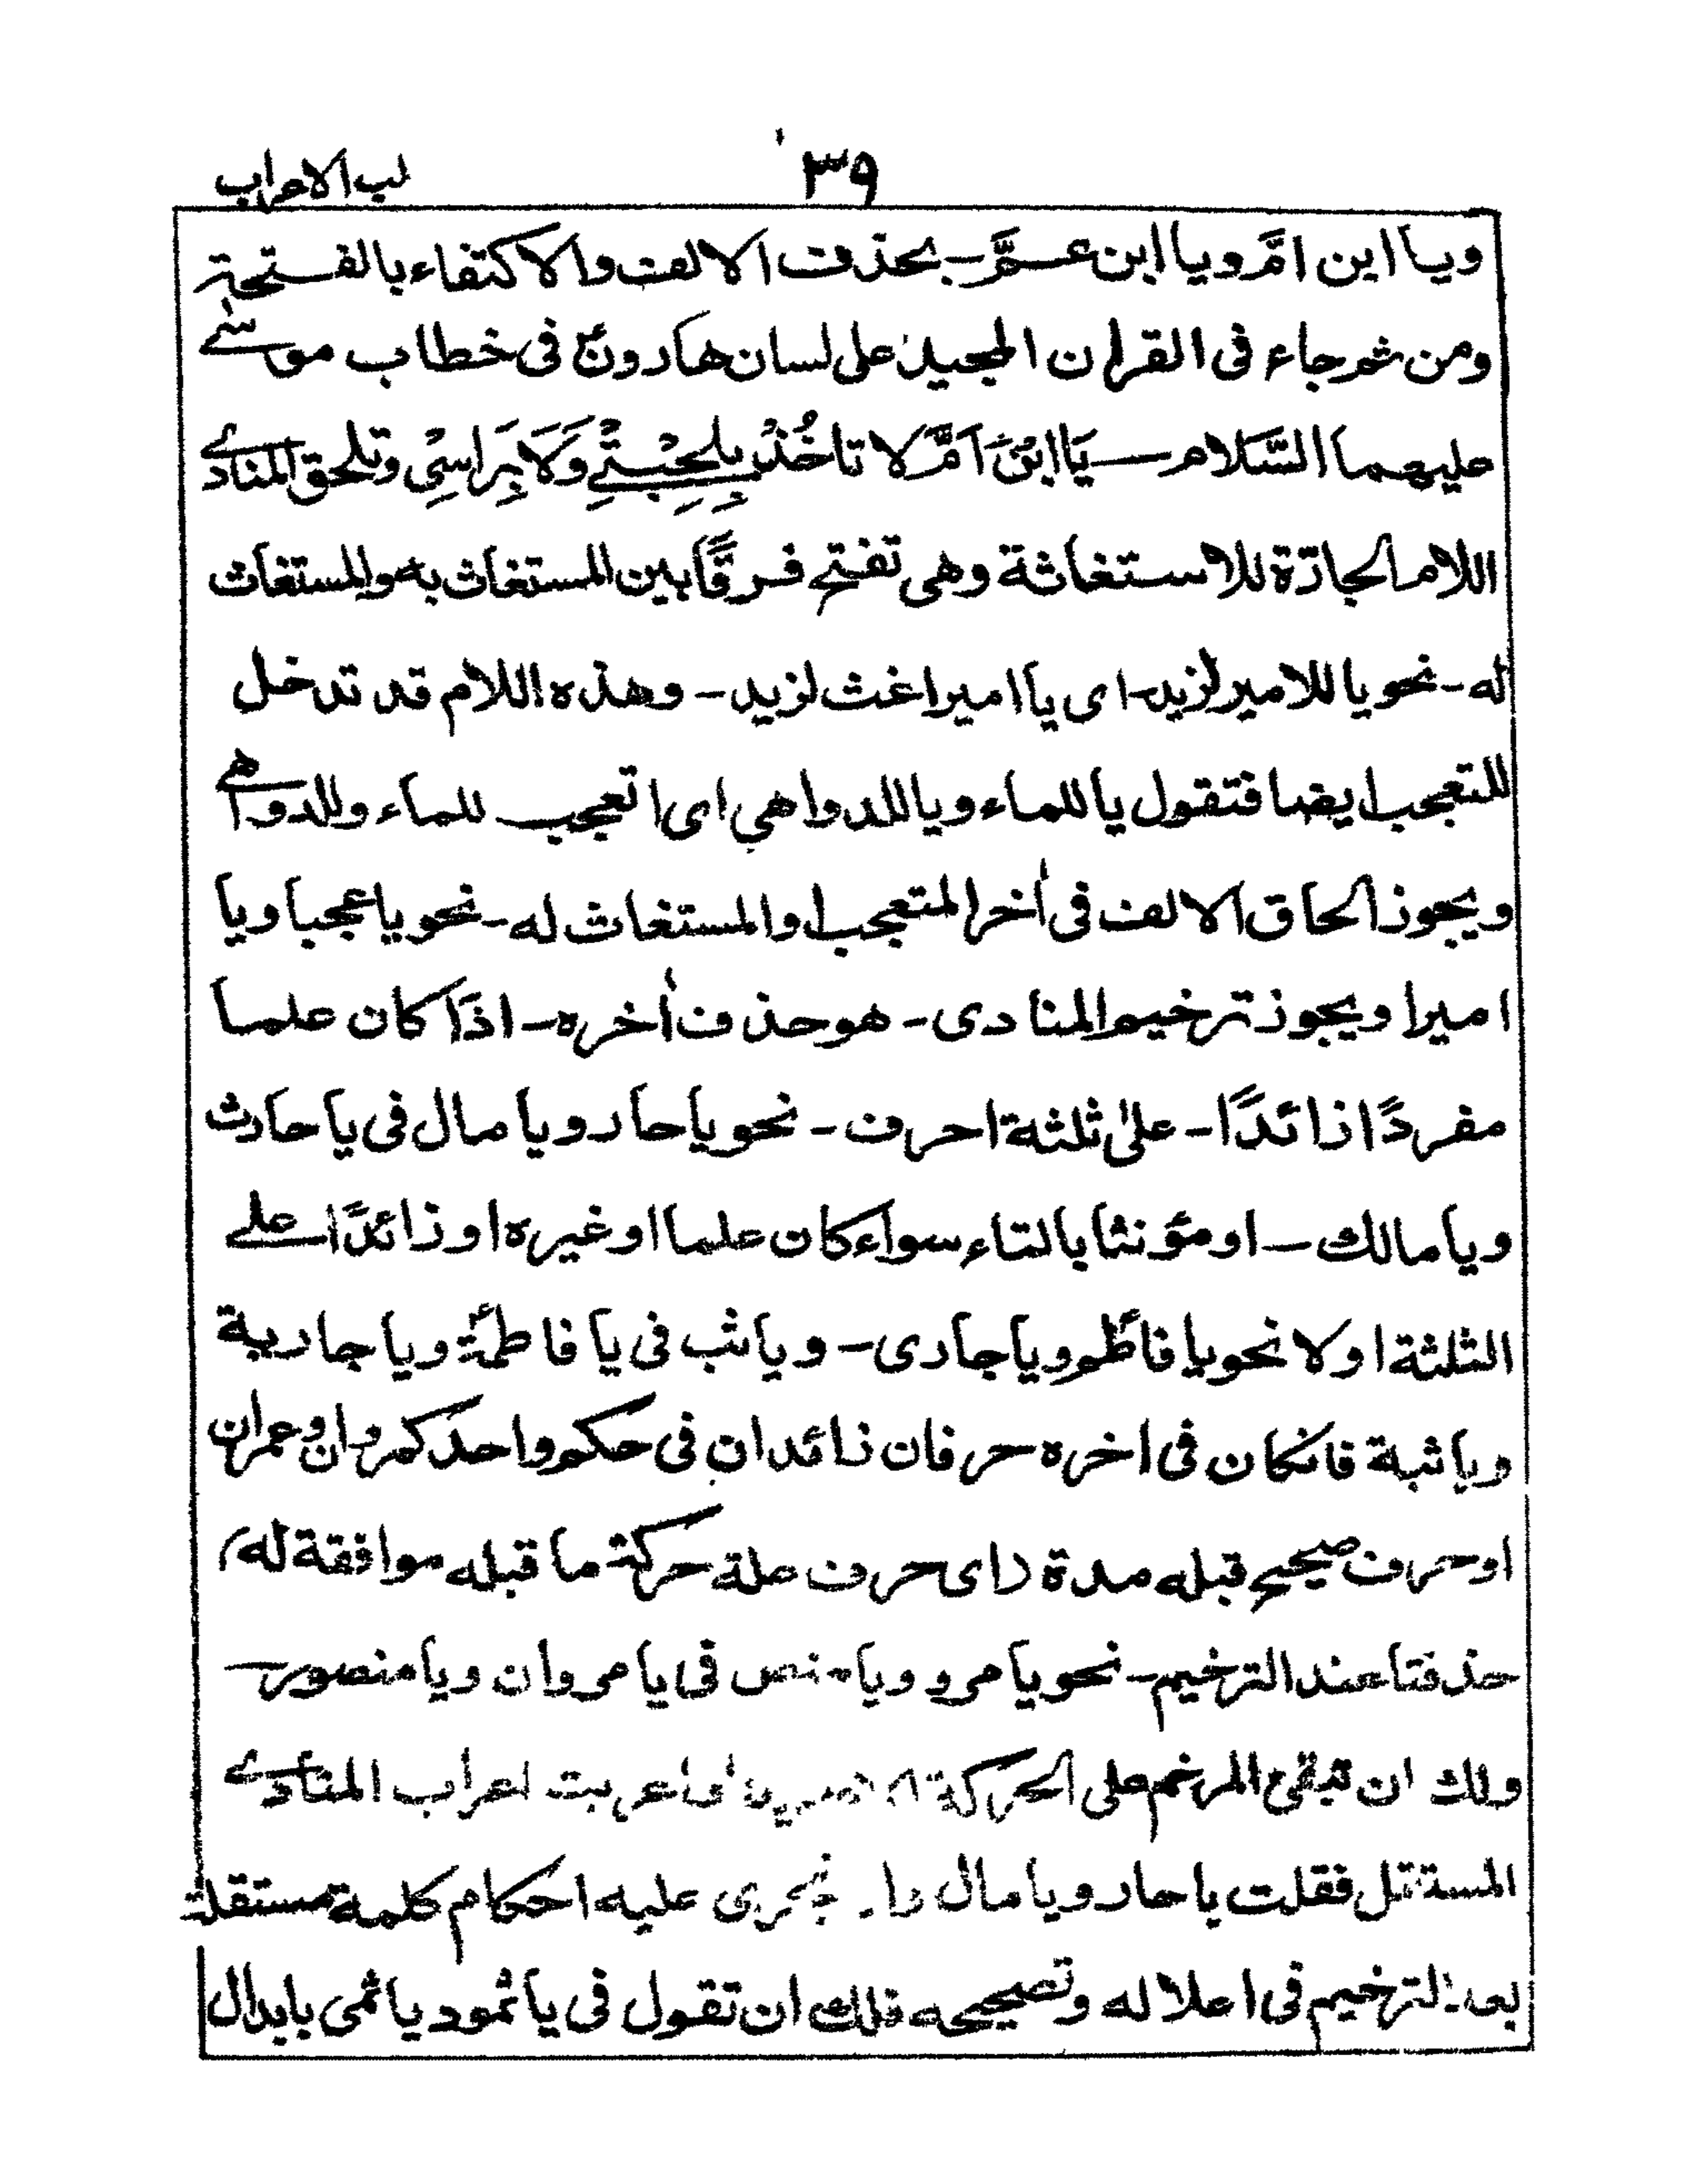 لب الاعراب
٣٩
ويا ابن امَّ ويا ابن عمَّ - بحذف الالف والاكتفاء بالفتحة
ومن ثم جاء فى القرآن المجيد على لسان هارونؑ فى خطاب موسٰے
عليهما السَّلام — يَا ابْنَ اَمَّ لا تاخُذْ بِلِحْيَتِے وَلَا بِرَاسِى وتلحق المنادے
اللام الجارّة للاستغاثة وهى تفتح فرقًا بين المستغاث به والمستغاث
له - نحو يا للامير لزيد - اى يا امير اغث لزيد - وهذه اللام قد تدخل
للتعجب ايضا فتقول يا للماء ويا للدواهي اى اتعجب للماء وللدواهے
ويجوز الحاق الالف فى اٰخر المتعجب او المستغاث له - نحو يا عجبا ويا
اميرا ويجوز ترخيم المنادى - هو حذف اٰخره - اذا كان علما
مفردًا زائدًا - علىٰ ثلثة احرف - نحو يا حار ويا مال فى يا حارث
ويا مالك - او مؤنثا بالتاء سواء كان علما او غيره او زائدًا علے
الثلثة او لا نحو يا فاطم ويا جارى - ويا ثب فى يا فاطمة ويا جارية
ويا ثبة فانكان فى اخره حرفان زائدان فى حكم واحد كمروان وعمران
او حرف صحيح قبله مدة (اى حرف علة حركة ما قبله موافقة له)
حذفتا عند الترخيم - نحو يا مرو ويا منص فى يا مروان ويا منصور -
ولك ان تبقى المرخم على الحركة اعربت اعراب المنادے
المستقل فقلت يا حار ويا مال عليه احكام كلمة مستقلة
بعد الترخيم فى اعلاله وتصحيحه فلك ان تقول فى يا ثمود يا ثمى بابدال